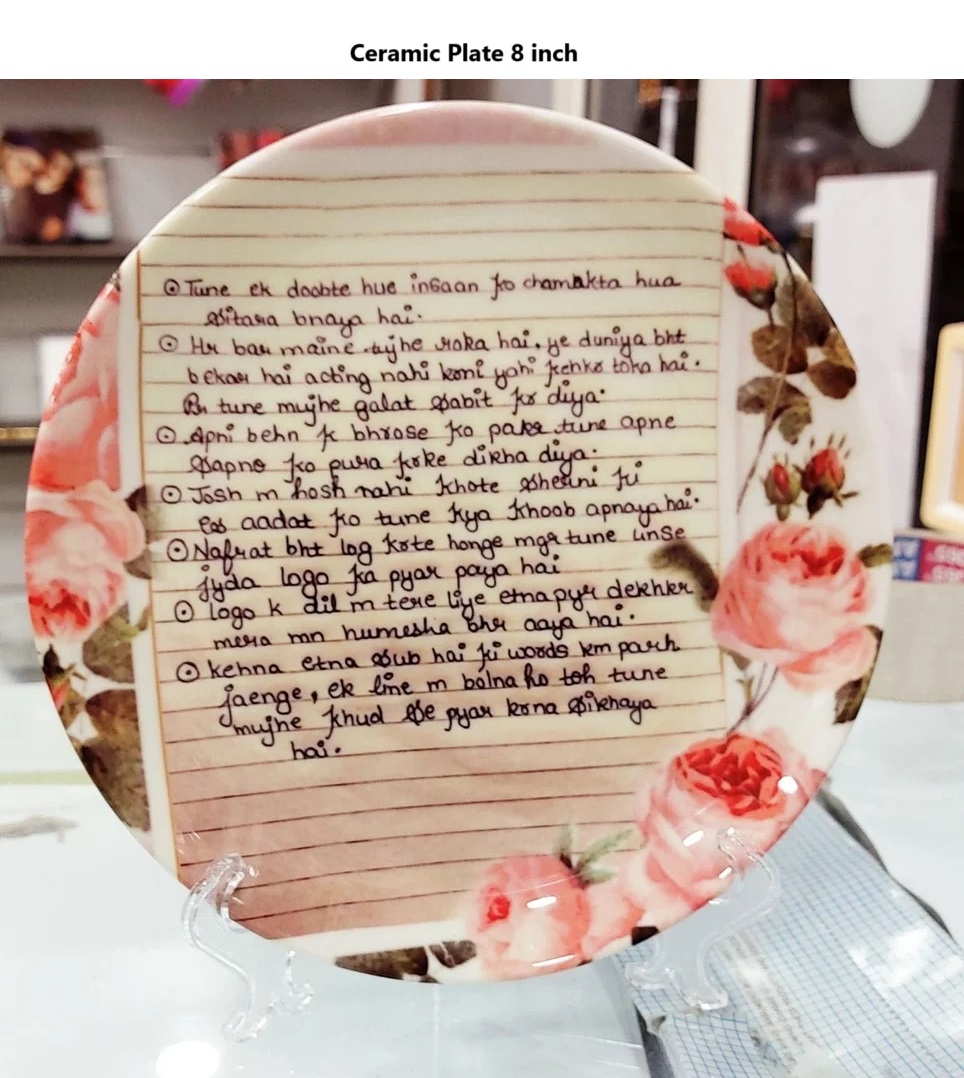 Ceramic Plate 8 inch
⊙ Tune ek doobte hue insaan ko chamakta hua
sitara bnaya hai.
⊙ Hr baar maine tujhe roka hai, ye duniya bht
bekaar hai acting nahi krni yahi kehkr toka hai.
Pr tune mujhe galat sabit kr diya.
⊙ Apni behn k bhrose ko pakr tune apne
sapno ko pura krke dikha diya.
⊙ Josh m hosh nahi khote shesini ki
ess aadat ko tune kya khoob apnaya hai.
⊙ Nafrat bht log krte honge mgr tune unse
jyda logo ka pyar paya hai
⊙ logo k dil m tere liye etna pyr dekhkr
mera mn humesha bhr aaya hai.
⊙ kehna etna sub hai ki words km parh
jaenge, ek line m bolna ho toh tune
mujhe khud se pyar krna sikhaya
hai.